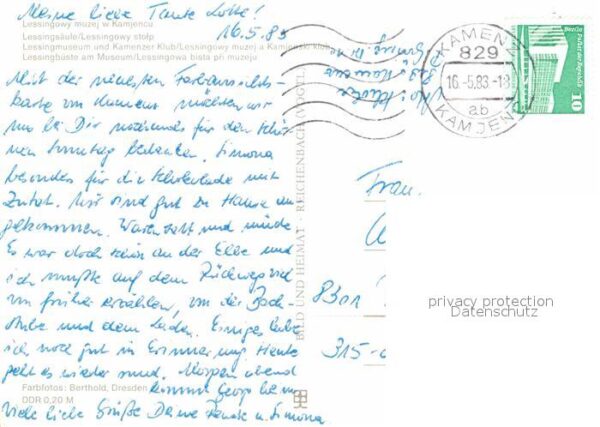 Meine liebe Tante Lotte!
Lessingowy muzej w Kamjencu
16.5.83
Lessingsäule/Lessingowy stołp
Lessingmuseum und Kamenzer Klub/Lessingowy muzej a Kamjenski klub
Lessingbüste am Museum/Lessingowa bista při muzeju
Mit der neuesten Farbansichts-
karte von Kamenz möchten wir
uns bei Dir nochmals für den schö-
nen Sonntag bedanken. Simona
besonders für die Schokolade mit
Zutat. Wir sind gut zu Hause an
gekommen. Waren satt und müde
Es war doch schön an der Elbe und
ich mußte auf dem Rückweg viel
von früher erzählen, von der Back-
stube und dem Laden. Einiges habe
ich noch gut in Erinnerung. Heute
geht es wieder rund. Morgen abend
kommt Georg heim
Viele liebe Grüße Deine u. Simona
Farbfotos: Berthold, Dresden
DDR 0,20 M
BILD UND HEIMAT · REICHENBACH (VOGTL)
KAMENZ
829
16.-5.83.-18
ab
KAMJENC
Berlin, Palast der Republik
10
DDR
Frau
8301
315-
privacy protection
Datenschutz